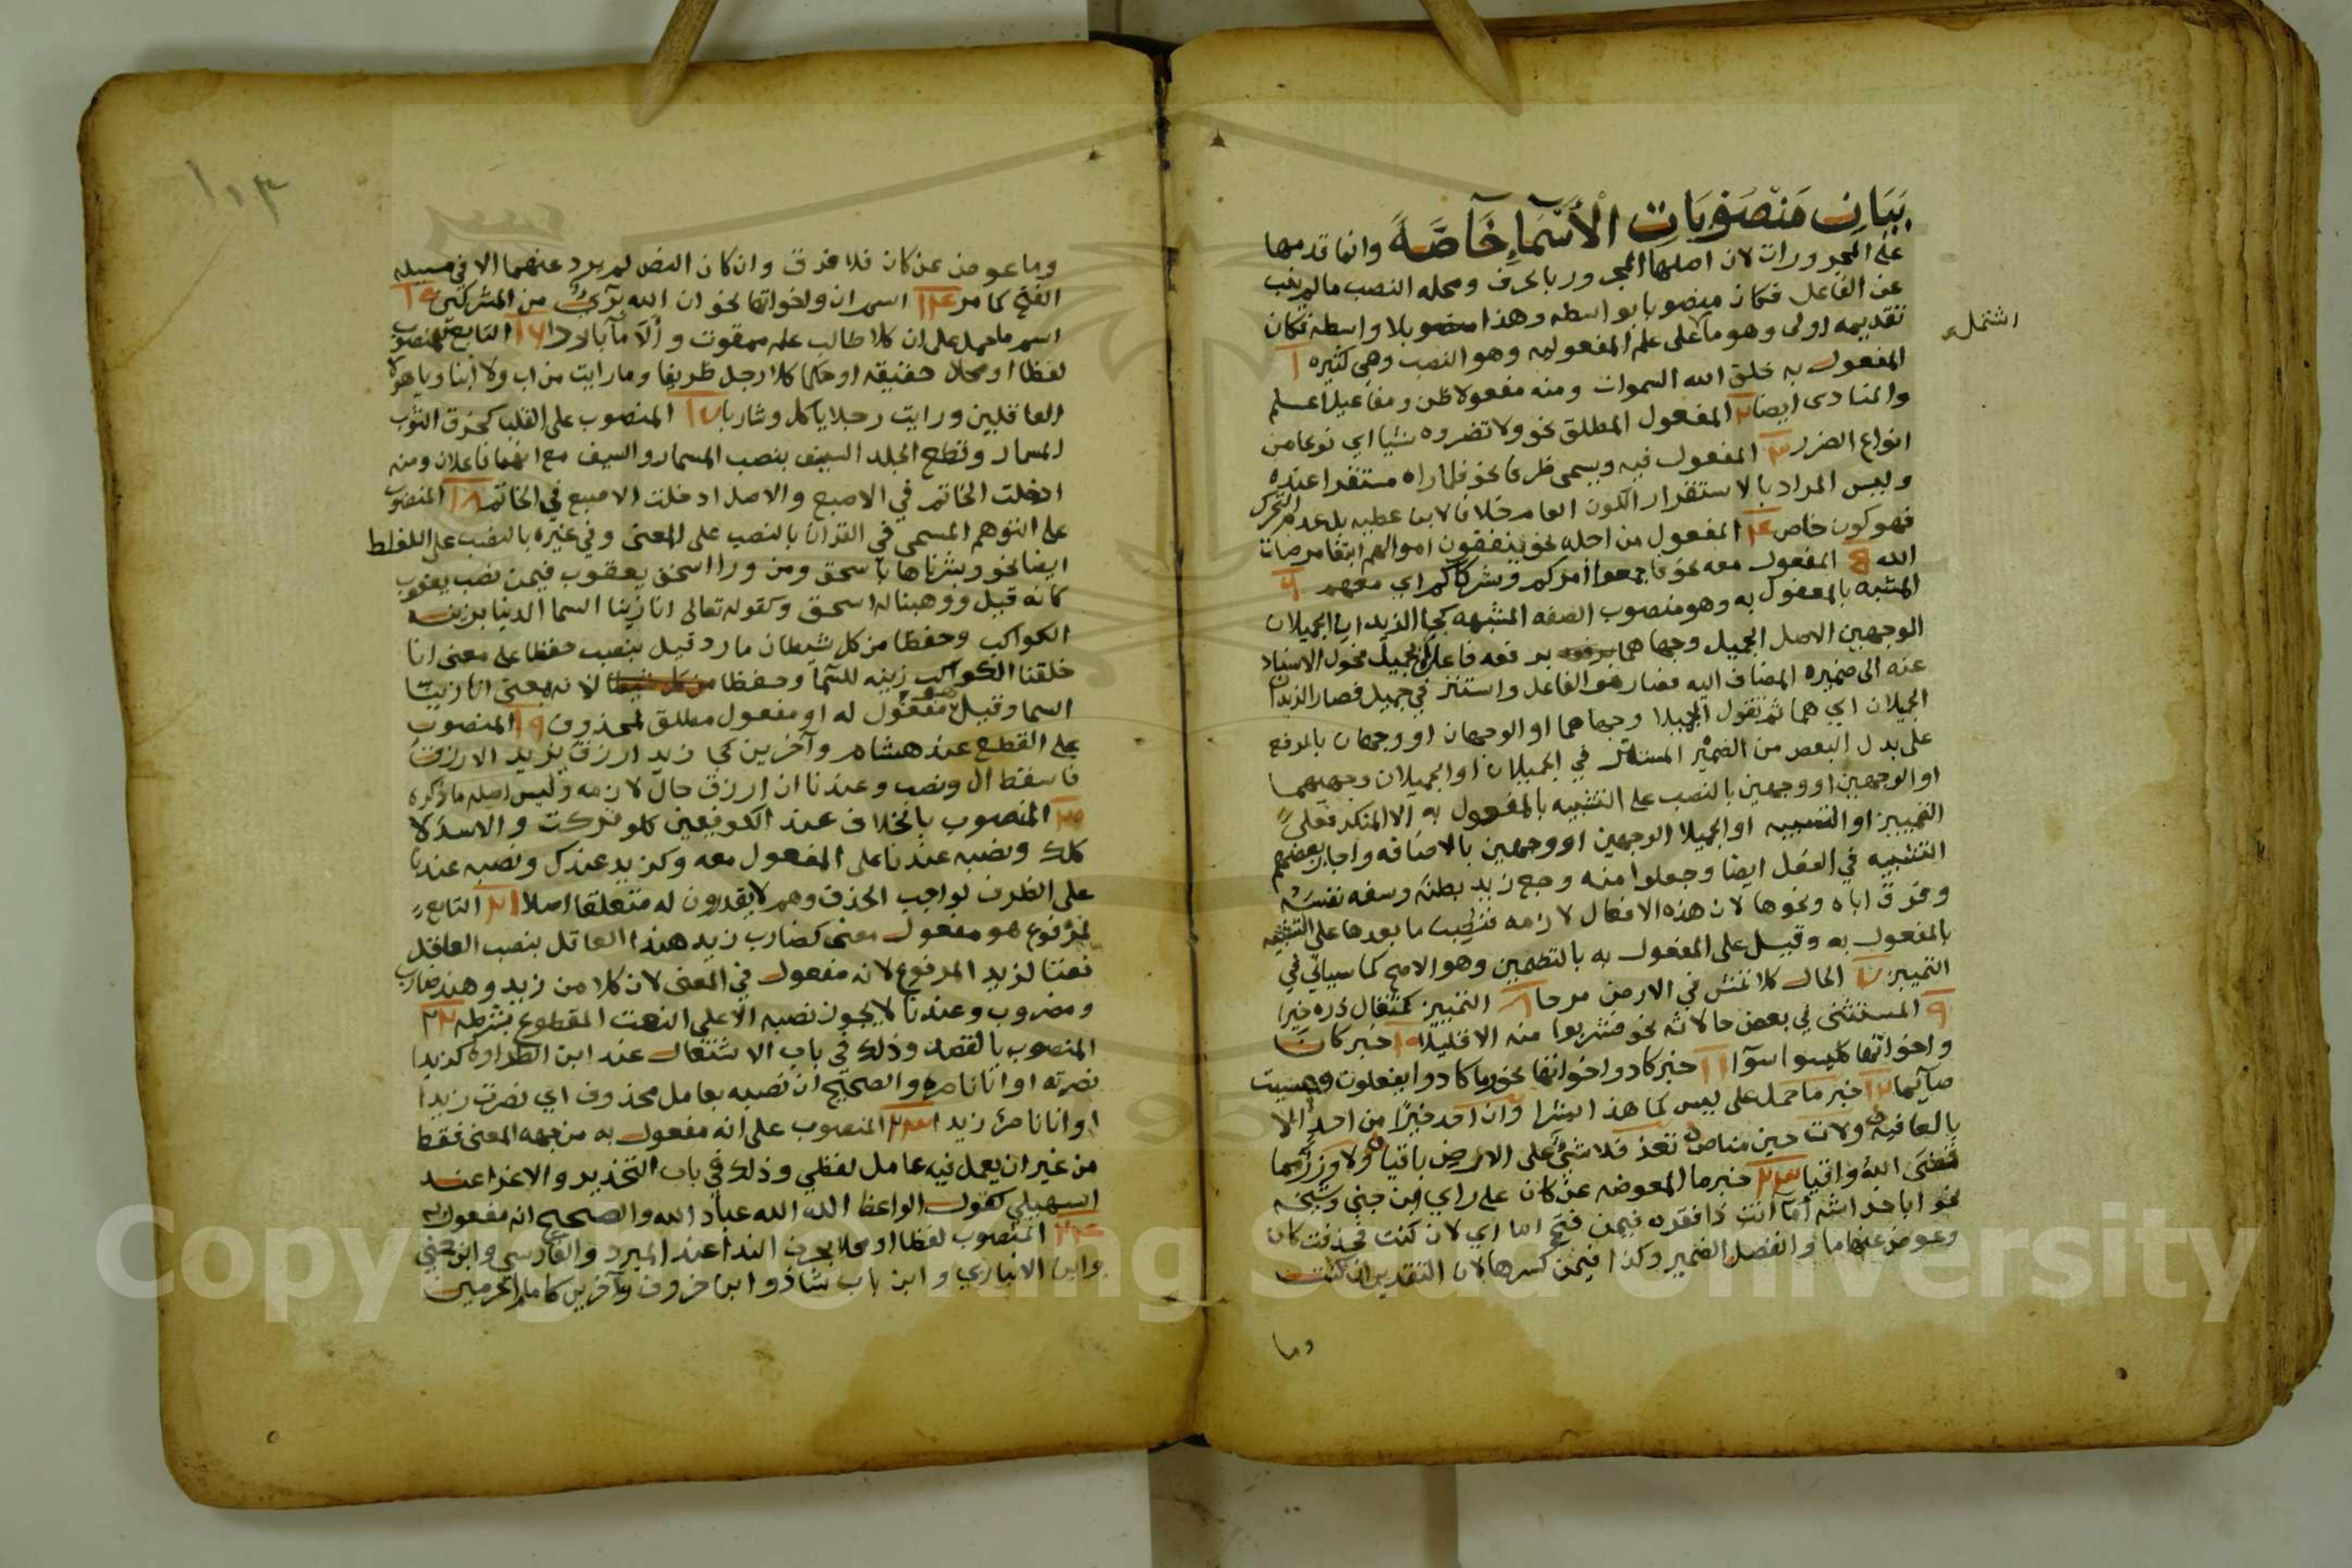 بَيَان مَنْصُوْبَاتِ الْأَسْمَاءِ خَآصَّةً وانما قدمها
على المجرورات لان اصلها المجرور بالحرف ومحله النصب ما لم ينب
عن الفاعل فكان منصوبا بواسطه وهذا منصوب بلا واسطه فكان
تقديمه اولى وهو ما على علم المفعوليه وهو النصب وهي كثيره ١
اشتمل
المفعول به خلق الله السموات ومنه مفعولا ظن ومفاعيل اعلم
والمنادى ايضا ٢ المفعول المطلق نحو ولا تضروه شيا اي نوعا من
انواع الضرر ٣ المفعول فيه ويسمى ظرفا نحو فلما راه مستقرا عنده
وليس المراد بالاستقرار الكون العام خلافا لابن عطيه بل عدم التحرك
فهو كون خاص ٤ المفعول من اجله نحو ينفقون اموالهم ابتغا مرضات
الله ٥ المفعول معه نحو فاجمعوا امركم وشركاكم اي معهم ٦
المشبه بالمفعول به وهو منصوب الصفه المشبهه كجا الزيدان الجميلان
الوجهين الاصل الجميل وجهاهما برفعه فاعلا لجميل فحول الاسناد
عنه الى ضميره المضاف اليه فصار هو الفاعل واستتر في جميل فصار الزيدان
الجميلان اي هما ثم تقول الجميلا وجهاهما او الوجهان او وجهان بالرفع
على بدل البعض من الضمير المستتر في الجميلان او الجميلان وجهيهما
او الوجهين او وجهين بالنصب على التشبيه بالمفعول به الا المنكر فعلى
التمييز او التشبيه او الجميلا الوجهين او وجهين بالاضافه واجاز بعضهم
التشبيه في الفعل ايضا وجعلوا منه وجع زيد بطنَه وسفه نفسَه
وفرق اباه ونحوها لان هذه الافعال لازمه فنصب ما بعدها على التشبيه
بالمفعول به وقيل على المفعول به بالتضمين وهو الاصح كما سياتي في
التمييز ٧ الحال كلا تمش في الارض مرحا ٨ التمييز كمثقال ذره خيرا
٩ المستثنى في بعض حالاته نحو فشربوا منه الا قليلا ١٠ خبر كان
واخواتها كليسوا سوآ ١١ خبر كاد واخواتها نحو وما كادوا يفعلون وعسيت
صآئما ١٢ خبر ما حمل على ليس كما هذا بشرا وان احد خيرًا من احد الا
بالعافيه ولات حين مناص تعز فلا شيٌ على الارض باقيا ولا وزر مما
قضى الله واقيا ١٣ خبر ما المعوضه عن كان على راي ابن جني وشيخه
نحو ابا خراشه أمّا انت ذا نفر فيمن فتح اما اي لان كنت فحذفت كان
وعوض عنها ما وانفصل الضمير وكذا فيمن كسرها لان التقدير ان كنت
وما
١٠٣
وما عوض عن كان فلا فرق وان كان النص لم يرد عنهما الا في مسيله
الفتح كما مر ١٤ اسم ان واخواتها نحو ان الله بَرَىٌ من المشركين ١٥
اسم ما حمل على ان كلا طالب علم ممقوت و ألا مآ باردا ١٦ التابع لمنصوب
لفظا او محلا حقيقه او حكما كلا رجل ظريفا وما رايت من اب ولا ابنا ويا هولا
العاقلين ورايت رجلا ياكل وشاربا ١٧ المنصوب على القلب كخرق الثوب
المسمار وقطع الجلد السيف بنصب المسمار والسيف مع انهما فاعلان ومنه
ادخلت الخاتم في الاصبع والاصل ادخلت الاصبع في الخاتم ١٨ المنصوب
على التوهم المسمى في القرآن بالنصب على المعنى وفي غيره بالنصب على الغلط
ايضا نحو وبشرناها باسحق ومن ورا اسحق يعقوب فيمن نصب يعقوب
كانه قيل ووهبنا له اسحق وكقوله تعالى انا زينا السما الدنيا بزينه
الكواكب وحفظا من كل شيطان مارد قيل بنصب حفظا على معنى انا
خلقنا الكواكب زينه للسَّما وحفظا لانه بمعنى انا زينا
السما وقيل هو مفعول له او مفعول مطلق لمحذوف ١٩ المنصوب
على القطع عند هشام وآخرين كجا زيد ازرق يزيد الازرق
فاسقط ال ونصب وعندنا ان ازرق حال لازمه وليس اصله ما ذكره
٢٠ المنصوب بالخلاف عند الكوفيين كلو تركت والاسدَ لا
كلك ونصبه عندنا على المفعول معه وكزيد عندك ونصبه عندنا
على الظرف لواجب الحذف وهم لا يقدرون له متعلقا اصلا ٢١ التابع
لمرفوع هو مفعول معنى كضارب زيد هندا العاقل بنصب العاقل
نعتا لزيد المرفوع لانه مفعول في المعنى لان كلا من زيد وهند ضارب
ومضروب وعندنا لا يجوز نصبه الا على النعت المقطوع بشرطه ٢٢
المنصوب بالقصد وذلك في باب الاشتغال عند ابن الطراوه كزيدا
نصرته او انا ناصره والصحيح ان نصبه بعامل محذوف اي نصرت زيدا
او انا ناصر زيدا ٢٣ المنصوب على انه مفعول به من جهه المعنى فقط
من غير ان يعمل فيه عامل لفظي وذلك في باب التحذير والاغرا عند
السهيلي كقول الواعظ الله الله عباد الله والصحيح انه مفعول به
٢٤ المنصوب لفظا او محلا بحرف الندا عند المبرد والفارسي وابن جني
وابن الانباري وابن باب شاذ وابن خروف وآخرين كامام الحرمين
Copyright © King Saud University